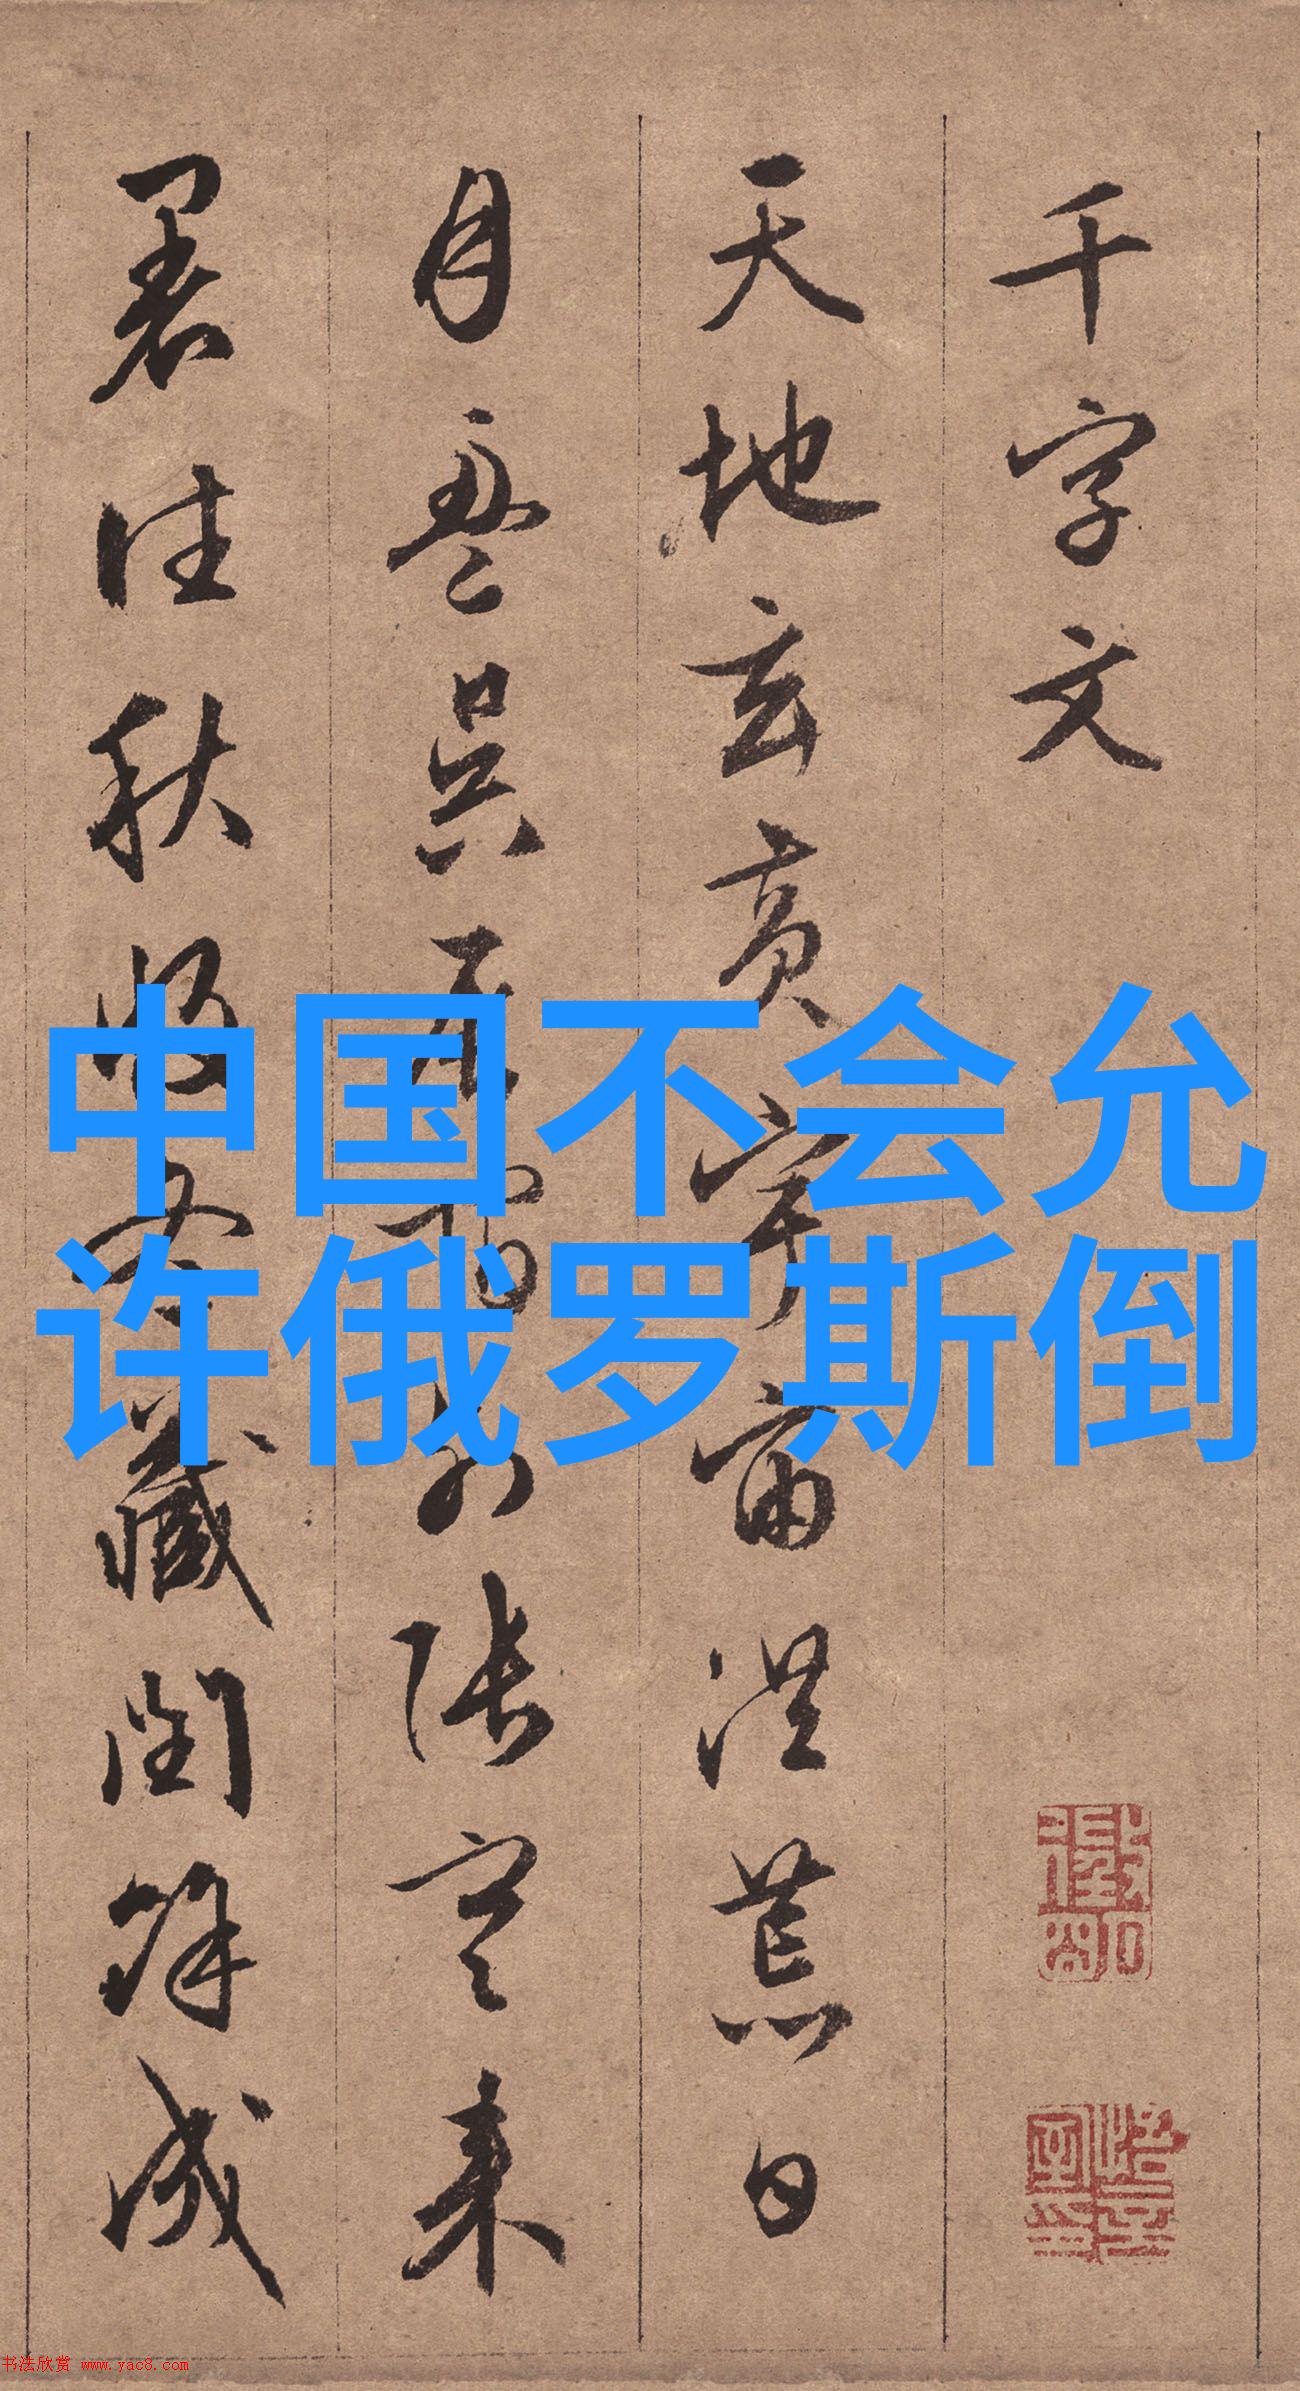 千字文
天地玄黄宇宙洪荒日
月盈昃辰宿列张寒来
暑往秋收冬藏闰馀成
中国不会允
许俄罗斯倒
书法欣赏 www.yac8.com